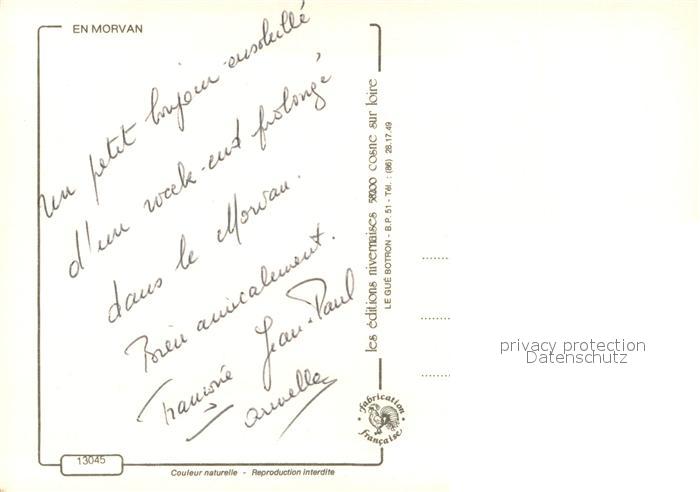 EN MORVAN
un petit bonjour ensoleillé
d'un week-end prolongé
dans le Morvan.
Bien amicalement.
Jean-Paul
les éditions nivernaises 58200 cosne sur loire
LE GUÉ BOTRON - B.P. 51 - Tél. : (86) 28.17.49
privacy protection
Datenschutz
fabrication
française
13045
Couleur naturelle - Reproduction interdite